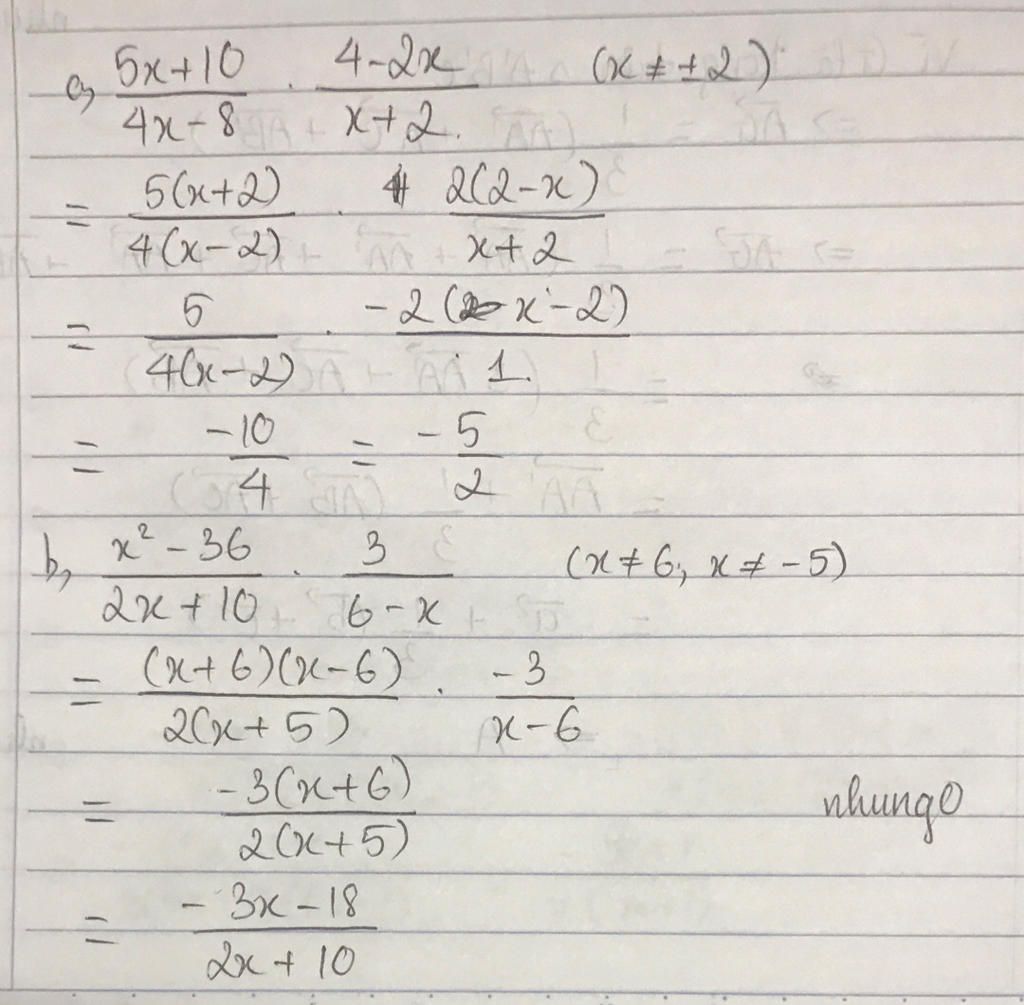 a, \frac{5x+10}{4x-8} \cdot \frac{4-2x}{x+2} (x ≠ ±2)
= \frac{5(x+2)}{4(x-2)} \cdot \frac{2(2-x)}{x+2}
= \frac{5}{4(x-2)} \cdot \frac{-2(x-2)}{1}
= \frac{-10}{4} = \frac{-5}{2}
b, \frac{x^2-36}{2x+10} \cdot \frac{3}{6-x} (x ≠ 6, x ≠ -5)
= \frac{(x+6)(x-6)}{2(x+5)} \cdot \frac{-3}{x-6}
= \frac{-3(x+6)}{2(x+5)} nhungo
= \frac{-3x-18}{2x+10}